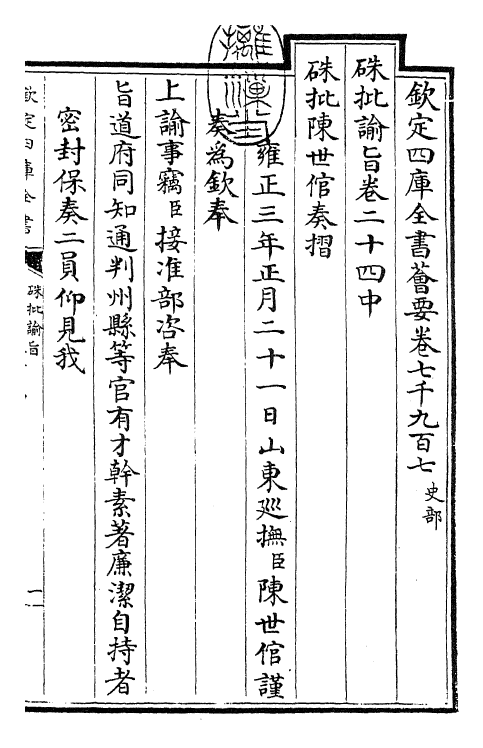 欽定四庫全書薈要卷七千九百七 史部
硃批諭旨卷二十四中
硃批陳世倌奏摺
雍正三年正月二十一日山東廵撫臣陳世倌謹
奏為欽奉
上諭事竊臣接准部咨奉
旨道府同知通判州縣等官有才幹素著廉潔自持者
密封保奏二員仰見我
欽定四庫全書
硃批諭旨
一